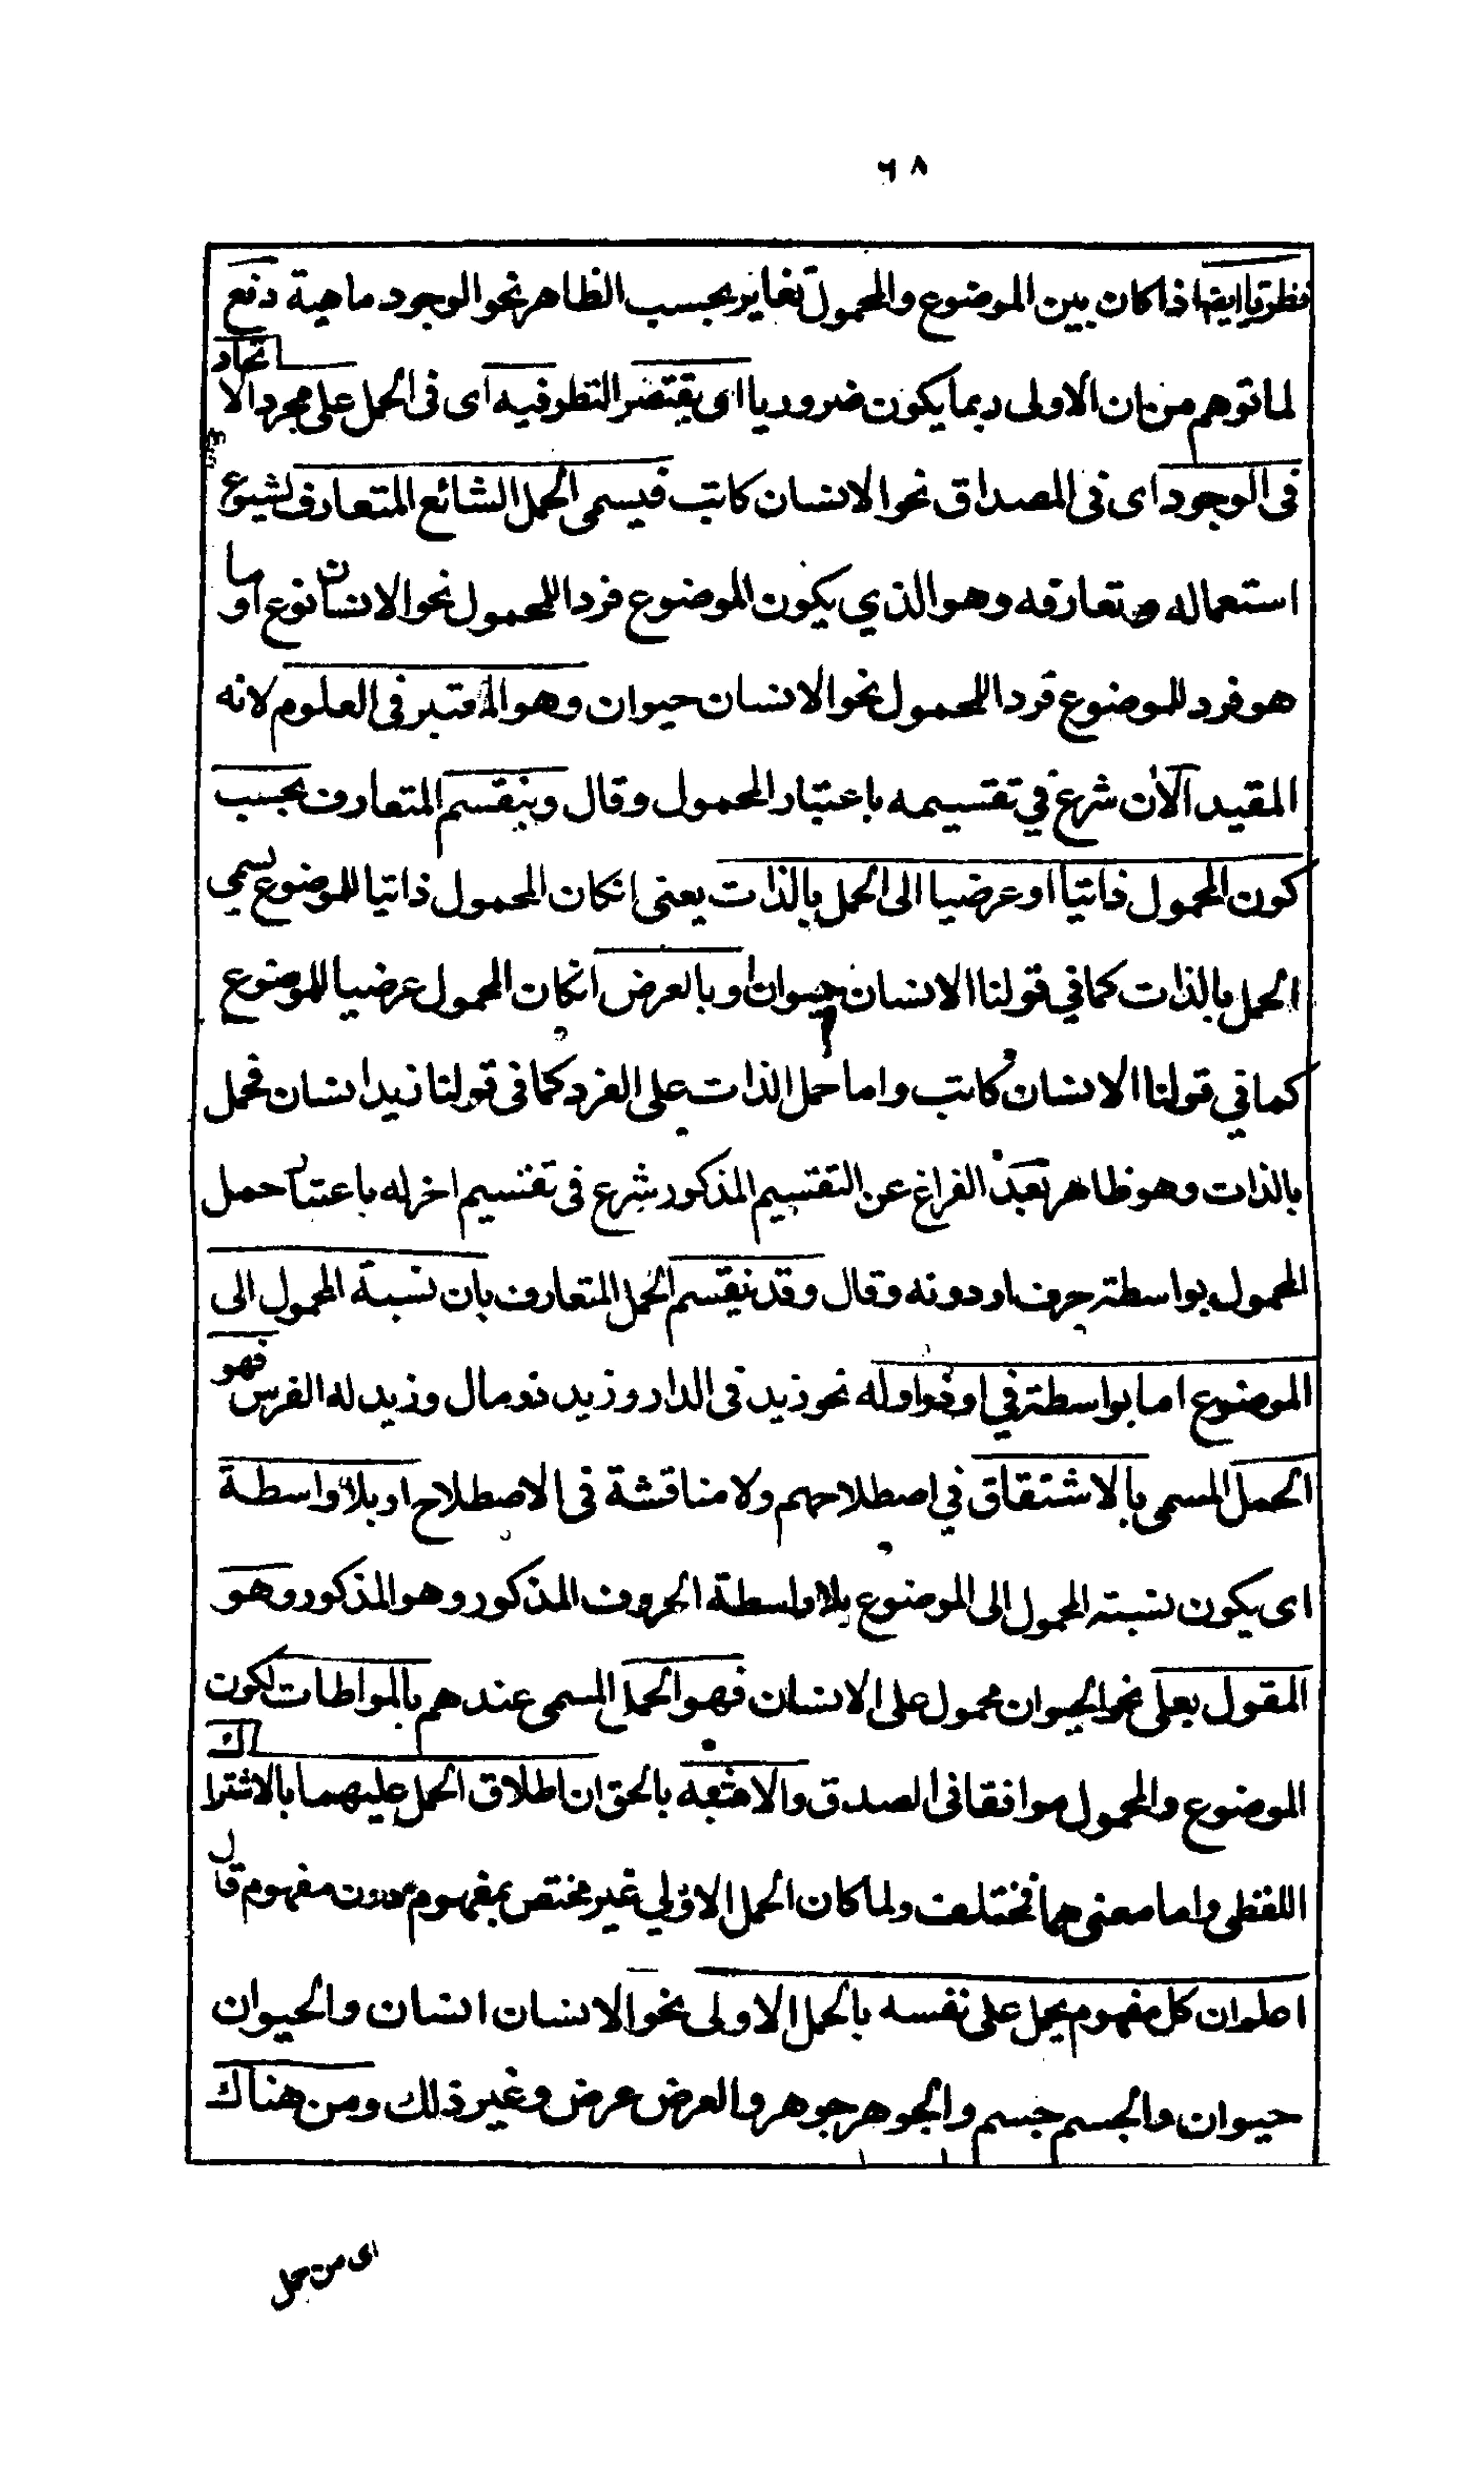 ٦٨
نظريا ايضا اذا كان بين الموضوع والمحمول تغاير بحسب الظاهر نحو الوجود ماهية دفع
لما توهم من ان الاولى ربما يكون ضروريا اى يقتصر النظر فيه اى فى الحمل على مجرد الاتحاد
فى الوجود اى فى المصداق نحو الانسان كاتب فيسمى الحمل الشائع المتعارف لشيوع
استعماله وتعارفه وهو الذي يكون الموضوع فردا للمحمول نحو الانسان نوع او ما
هو فرد للموضوع فردا للمحمول نحو الانسان حيوان وهو المعتبر فى العلوم لانه
المقيد الان شرع في تقسيمه باعتبار المحمول وقال وينقسم المتعارف بحسب
كون المحمول ذاتيا او عرضيا الى الحمل بالذات يعنى انكان المحمول ذاتيا للموضوع يسمى
الحمل بالذات كما في قولنا الانسان حيوان او بالعرض انكان المحمول عرضيا للموضوع
كما في قولنا الانسان كاتب واما حمل الذات على الفرد كما فى قولنا زيد انسان فحمل
بالذات وهو ظاهر بعد الفراغ عن التقسيم المذكور شرع فى تقسيم اخر له باعتبار حمل
المحمول بواسطة حرف او دونه وقال وقد ينقسم الحمل المتعارف بان نسبة المحمول الى
الموضوع اما بواسطة في او ذو او له نحو زيد فى الدار وزيد ذو مال وزيد له الفرس فهو
الحمل المسمى بالاشتقاق في اصطلاحهم ولا مناقشة فى الاصطلاح او بلا واسطة
اى يكون نسبته المحمول الى الموضوع بلا واسطة الحروف المذكور وهو المذكور وهو
المقول بعلى نحو الحيوان محمول على الانسان فهو الحمل المسمى عندهم بالمواطات لكون
الموضوع والمحمول موافقا فى الصدق والاشبه بالحق ان اطلاق الحمل عليهما بالاشتراك
اللفظى واما معنى هما فمختلف ولما كان الحمل الاولي غير مختص بمفهوم دون مفهوم قال
اعلم ان كل مفهوم يحمل على نفسه بالحمل الاولى نحو الانسان انسان والحيوان
حيوان والجسم جسم والجوهر جوهر والعرض عرض وغير ذلك ومن هناك
اى من حمل